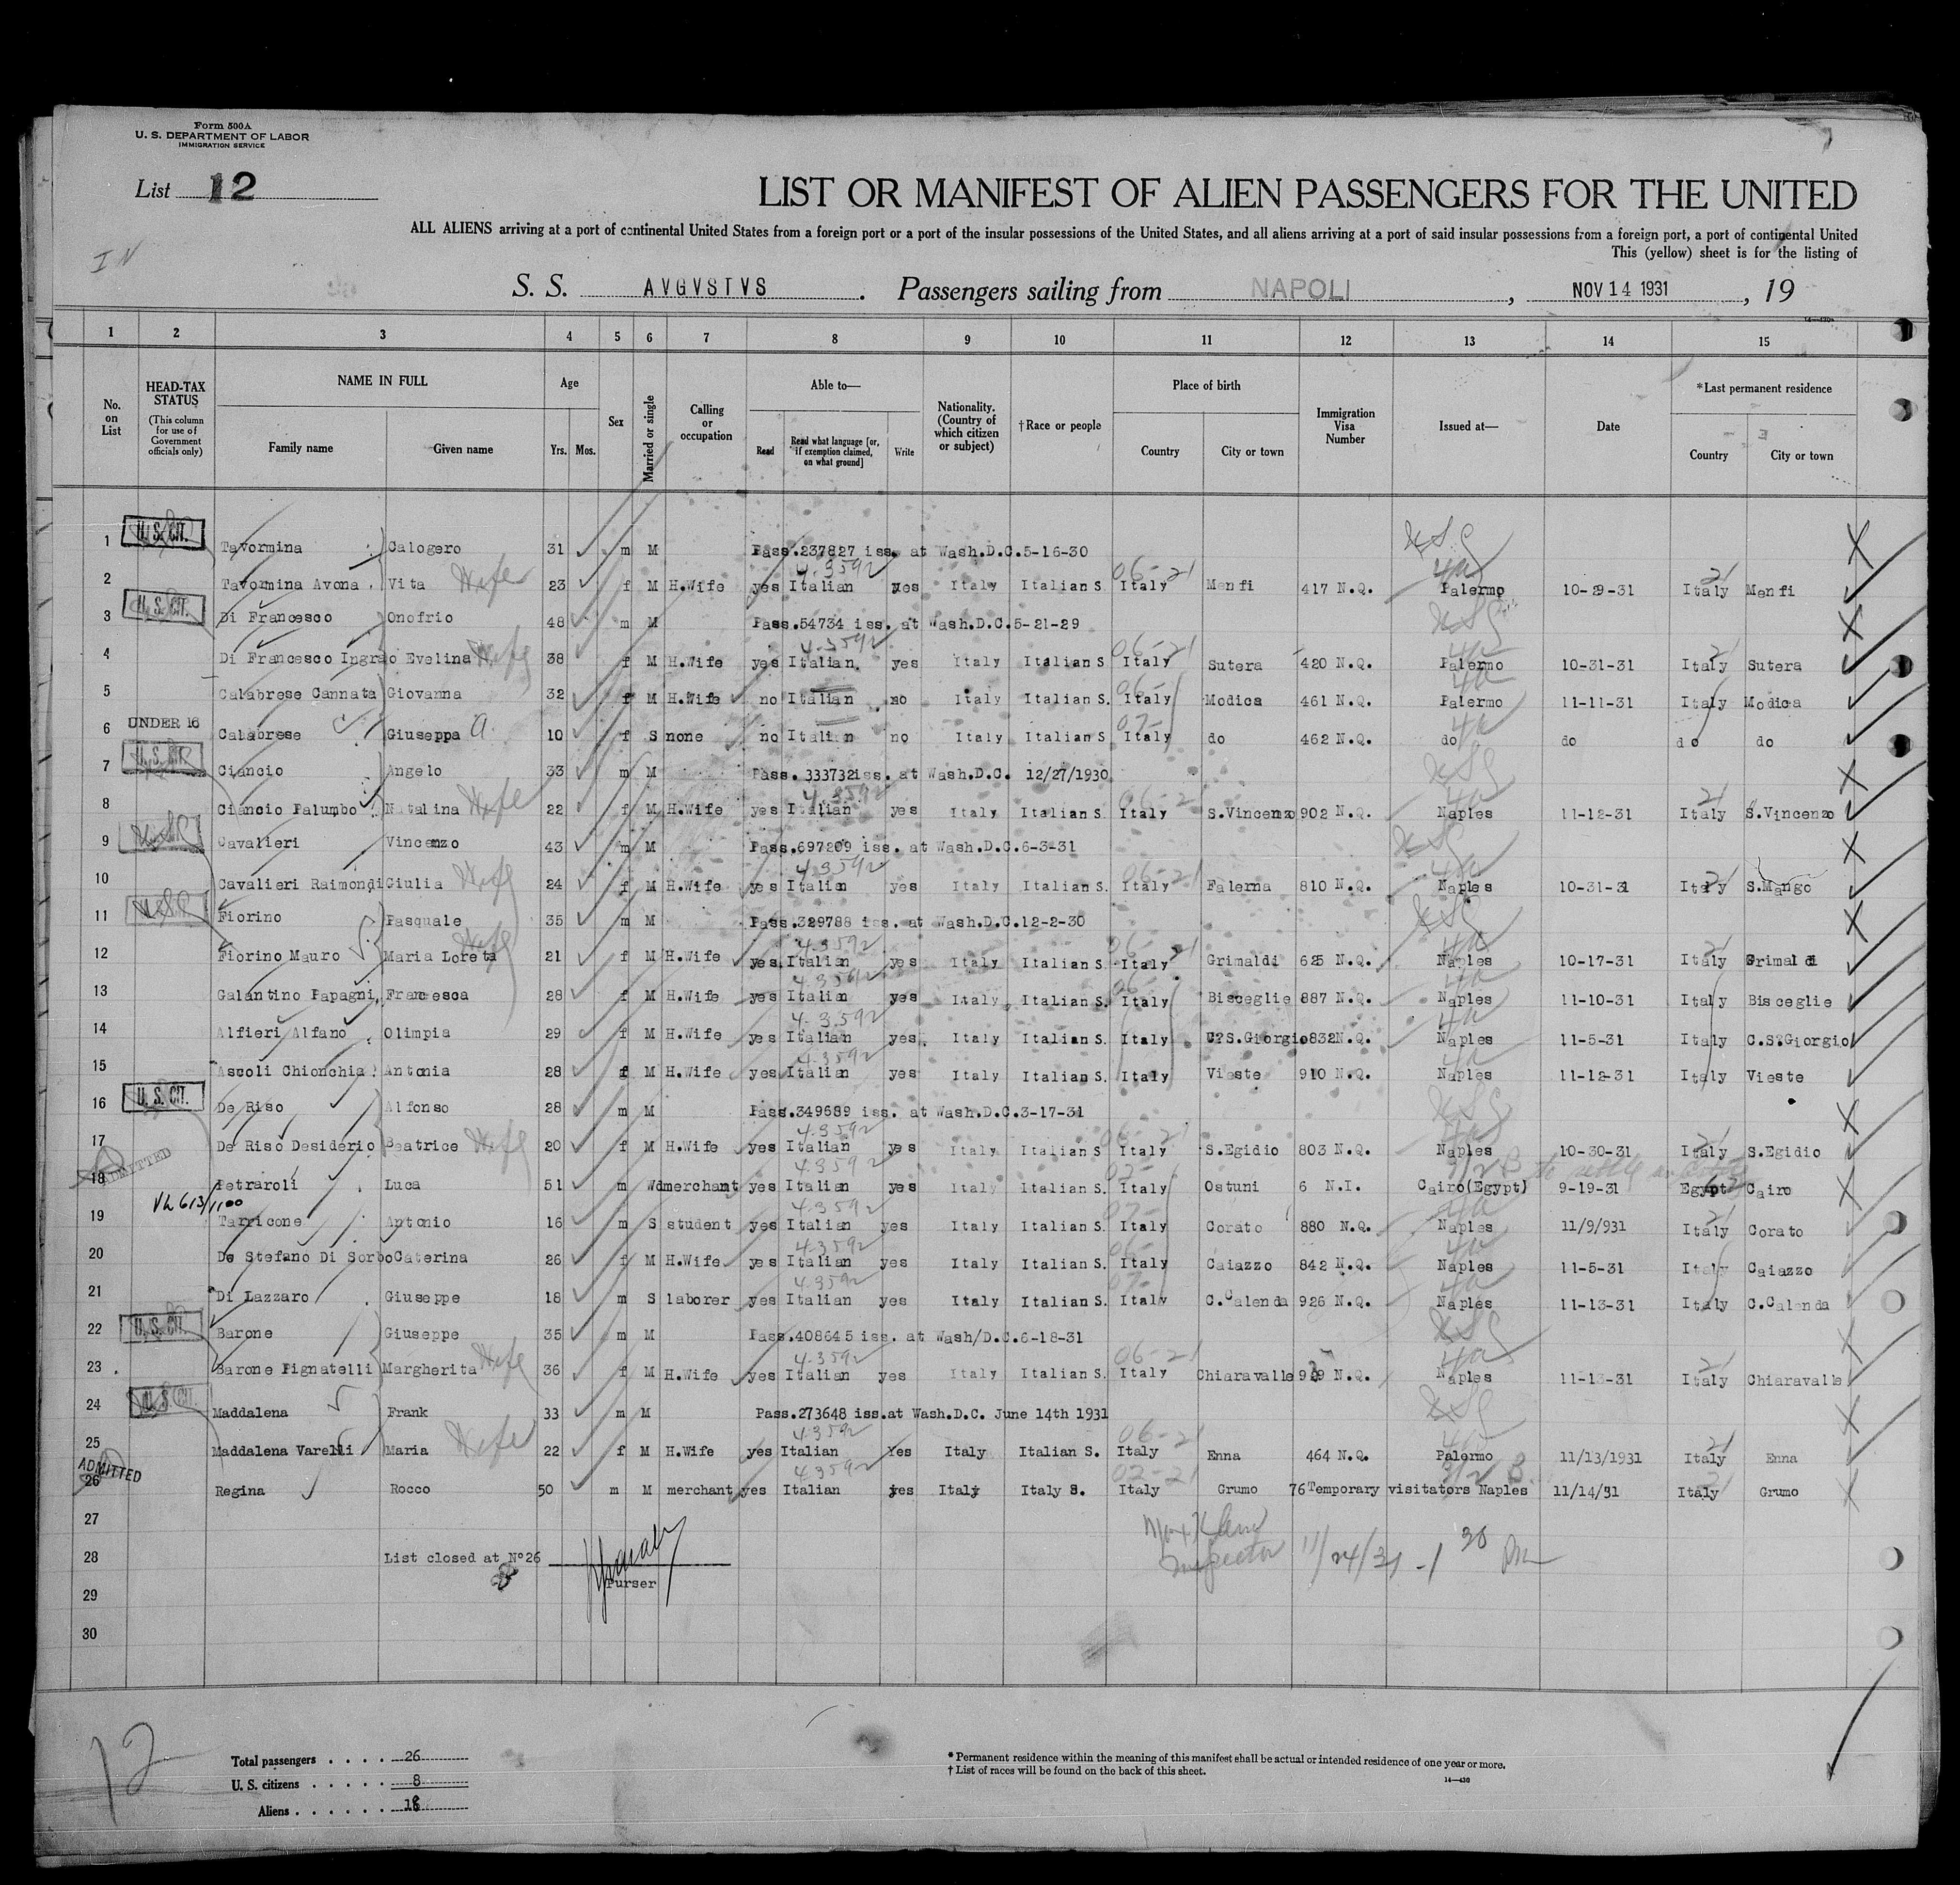 Form 500A
U. S. DEPARTMENT OF LABOR
IMMIGRATION SERVICE
List 12
LIST OR MANIFEST OF ALIEN PASSENGERS FOR THE UNITED
ALL ALIENS arriving at a port of continental United States from a foreign port or a port of the insular possessions of the United States, and all aliens arriving at a port of said insular possessions from a foreign port, a port of continental United
This (yellow) sheet is for the listing of
IN
S. S. AVGVSTVS. Passengers sailing from NAPOLI, NOV 14 1931, 19
14—430
1 2 3 4 5 6 7 8 9 10 11 12 13 14 15
No. on List
HEAD-TAX STATUS (This column for use of Government officials only)
NAME IN FULL Family name Given name
Age Yrs. Mos.
Sex
Married or single
Calling or occupation
Able to— Read Read what language [or, if exemption claimed, on what ground] Write
Nationality. (Country of which citizen or subject)
†Race or people
Place of birth Country City or town
Immigration Visa Number
Issued at—
Date
*Last permanent residence Country City or town
1 U. S. CIT. Tavormina Calogero 31 m M Pass.237827 iss. at Wash.D.C.5-16-30 USC X
2 Tavormina Avona Vita Wife 23 f M H.Wife yes Italian 4.3592 yes Italy Italian S 06-21 Italy Menfi 417 N.Q. 4a Palermo 10-29-31 21 Italy Menfi
3 U. S. CIT. Di Francesco Onofrio 48 m M Pass.54734 iss. at Wash.D.C.5-21-29 USC X
4 Di Francesco Ingrao Evelina Wife 38 f M H.Wife yes Italian 4.3592 yes Italy Italian S 06-21 Italy Sutera 420 N.Q. 4a Palermo 10-31-31 21 Italy Sutera
5 Calabrese Cannata Giovanna 32 f M H.Wife no Italian no Italy Italian S. 06- Italy Modica 461 N.Q. 4a Palermo 11-11-31 Italy Modica
6 UNDER 16 Calabrese Giuseppa a. 10 f S none no Italian no Italy Italian S. 07- Italy do 462 N.Q. 4a do do do do
7 U. S. CIT. Ciancio Angelo 33 m M Pass. 333732iss. at Wash.D.C. 12/27/1930 USC X
8 Ciancio Palumbo Natalina Wife 22 f M H.Wife yes Italian 4.3592 yes Italy Italian S. 06-21 Italy S.Vincenzo 902 N.Q. 4a Naples 11-12-31 21 Italy S.Vincenzo
9 Cavalieri Vincenzo 43 m M Pass.697209 iss. at Wash.D.C.6-3-31 USC X
10 Cavalieri Raimondi Giulia Wife 24 f M H.Wife yes Italian 4.3592 yes Italy Italian S. 06-21 Italy Falerna 810 N.Q. 4a Naples 10-31-31 21 Italy S.Mango
11 Fiorino Pasquale 35 m M Pass.329788 iss. at Wash.D.C.12-2-30 USC X
12 Fiorino Mauro Maria Loreta Wife 21 f M H.Wife yes Italian 4.3592 yes Italy Italian S. 06-21 Italy Grimaldi 625 N.Q. 4a Naples 10-17-31 21 Italy Grimaldi
13 Galantino Papagni, Francesca 28 f M H.Wife yes Italian 4.3592 yes Italy Italian S. 06- Italy Bisceglie 887 N.Q. 4a Naples 11-10-31 Italy Bisceglie
14 Alfieri Alfano Olimpia 29 f M H.Wife yes Italian 4.3592 yes Italy Italian S. Italy C.S.Giorgio 832N.Q. 4a Naples 11-5-31 Italy C.S.Giorgio
15 Ascoli Chionchia Antonia 28 f M H.Wife yes Italian 4.3592 yes Italy Italian S. Italy Vieste 910 N.Q. 4a Naples 11-12-31 Italy Vieste
16 U. S. CIT. De Riso Alfonso 28 m M Pass.349689 iss. at Wash.D.C.3-17-31 USC X
17 De Riso Desiderio Beatrice Wife 20 f M H.Wife yes Italian 4.3592 yes Italy Italian S 06-21 Italy S.Egidio 803 N.Q. 4a Naples 10-30-31 21 Italy S.Egidio
18 ADMITTED Petraroli Luca 51 m Wd merchant yes Italian 4.3592 yes Italy Italian S. 02- Italy Ostuni 6 N.I. 3/2 B Cairo(Egypt) 9-19-31 Egypt Cairo X
19 Tarricone Antonio 16 m S student yes Italian 4.3592 yes Italy Italian S. 07- Italy Corato 880 N.Q. 4a Naples 11/9/931 21 Italy Corato
20 De Stefano Di Sorbo Caterina 26 f M H.Wife yes Italian 4.3592 yes Italy Italian S. 06- Italy Caiazzo 842 N.Q. 4a Naples 11-5-31 Italy Caiazzo
21 Di Lazzaro Giuseppe 18 m S laborer yes Italian 4.3592 yes Italy Italian S. 07- Italy C.Calenda 926 N.Q. 4a Naples 11-13-31 Italy C.Calenda
22 U. S. CIT. Barone Giuseppe 35 m M Pass.408645 iss. at Wash/D.C.6-18-31 USC X
23 Barone Pignatelli Margherita Wife 36 f M H.Wife yes Italian 4.3592 yes Italy Italian S. 06-21 Italy Chiaravalle N.Q. 4a Naples 11-13-31 21 Italy Chiaravalle
24 U. S. CIT. Maddalena Frank 33 m M Pass.273648 iss.at Wash.D.C. June 14th 1931 USC X
25 Maddalena Varelli Maria Wife 22 f M H.Wife yes Italian 4.3592 Yes Italy Italian S. 06-21 Italy Enna 464 N.Q. 4a Palermo 11/13/1931 21 Italy Enna
26 ADMITTED Regina Rocco 50 m M merchant yes Italian 4.3592 yes Italy Italy S. 02-21 Italy Grumo 76 Temporary visitators Naples 3/2 B. 11/14/31 21 Italy Grumo X
27
28 List closed at N°26 Inspector 11/24/31 -1 30 Pm
Purser
29
30
12
Total passengers . . . . 26
U. S. citizens . . . . . 8
Aliens . . . . . . 18
* Permanent residence within the meaning of this manifest shall be actual or intended residence of one year or more.
† List of races will be found on the back of this sheet.
14—430